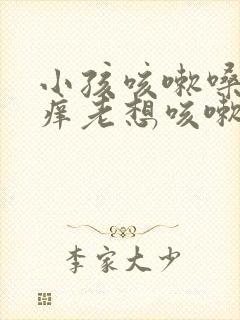 小孩咳嗽嗓
痒老想咳嗽
李家大少